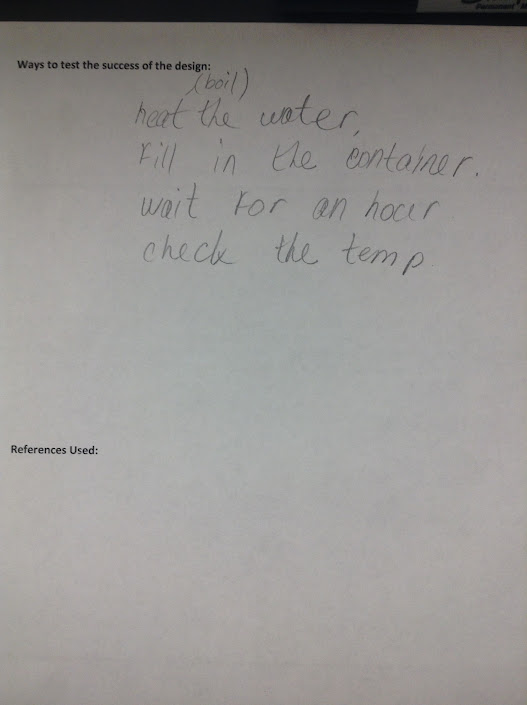 Permanent
Ways to test the success of the design:
(boil)
heat the water,
Fill in the container.
wait for an hour
check the temp
References Used: